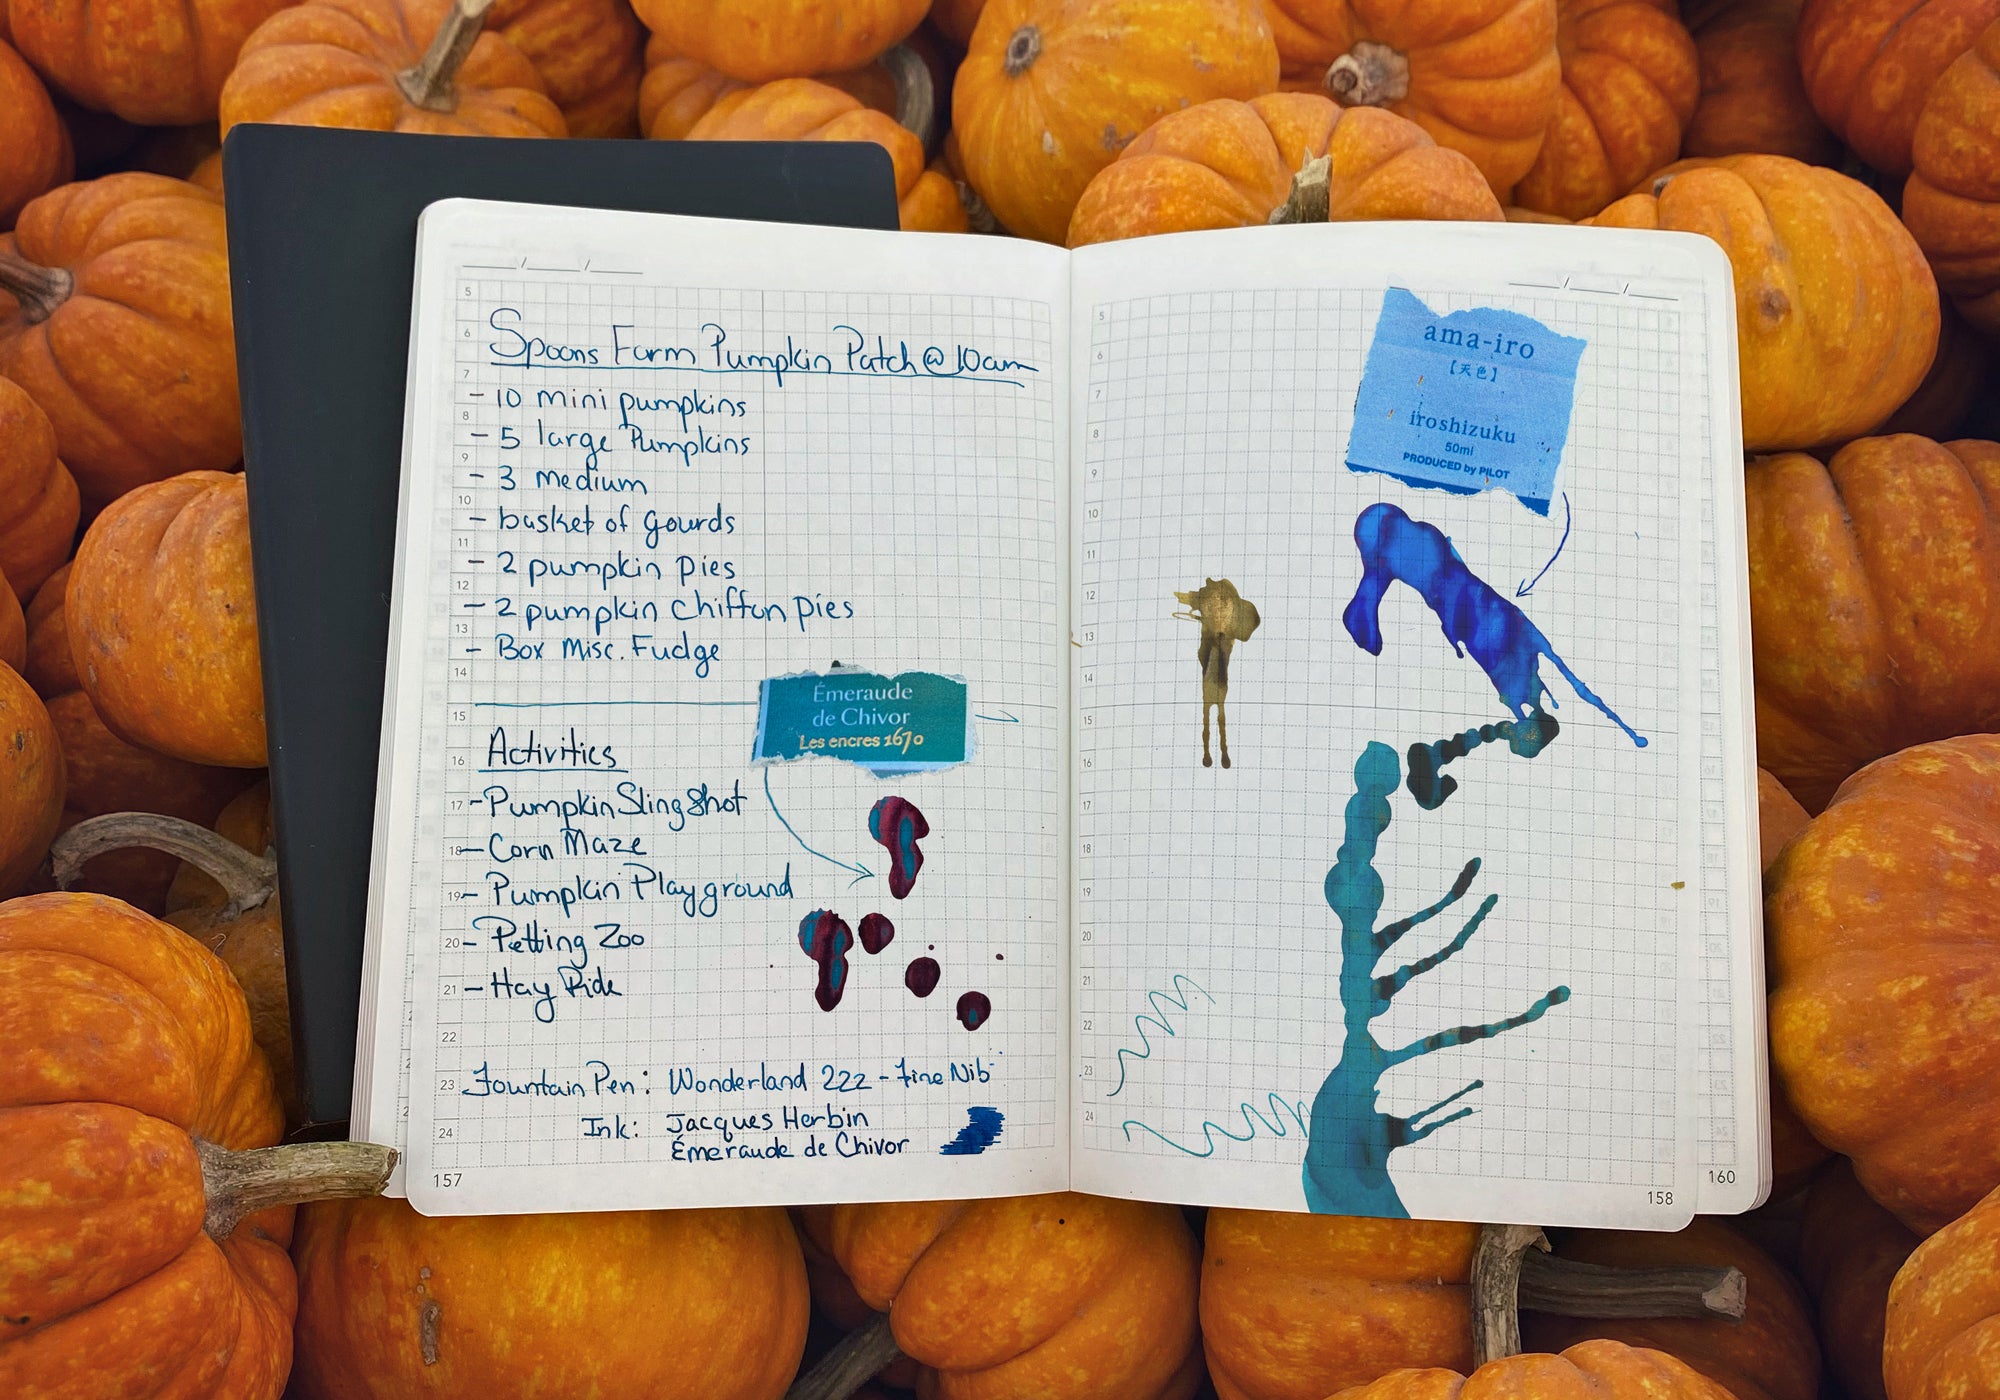 Spoons Farm Pumpkin Patch @ 10am
- 10 mini pumpkins
- 5 large Pumpkins
- 3 medium
- basket of gourds
- 2 pumpkin pies
- 2 pumpkin chiffon pies
- Box Misc. Fudge
Émeraude
de Chivor
Les encres 1670
Activities
- Pumpkin Sling Shot
- Corn Maze
- Pumpkin Playground
- Petting Zoo
- Hay Ride
Fountain Pen: Wonderland 222 - Fine Nib
Ink: Jacques Herbin
Émeraude de Chivor
5
6
7
8
9
10
11
12
13
14
15
16
17
18
19
20
21
22
23
24
157
ama-iro
【天色】
iroshizuku
50ml
PRODUCED by PILOT
5
6
7
8
9
10
11
12
13
14
15
16
17
18
19
20
21
22
23
24
158
160